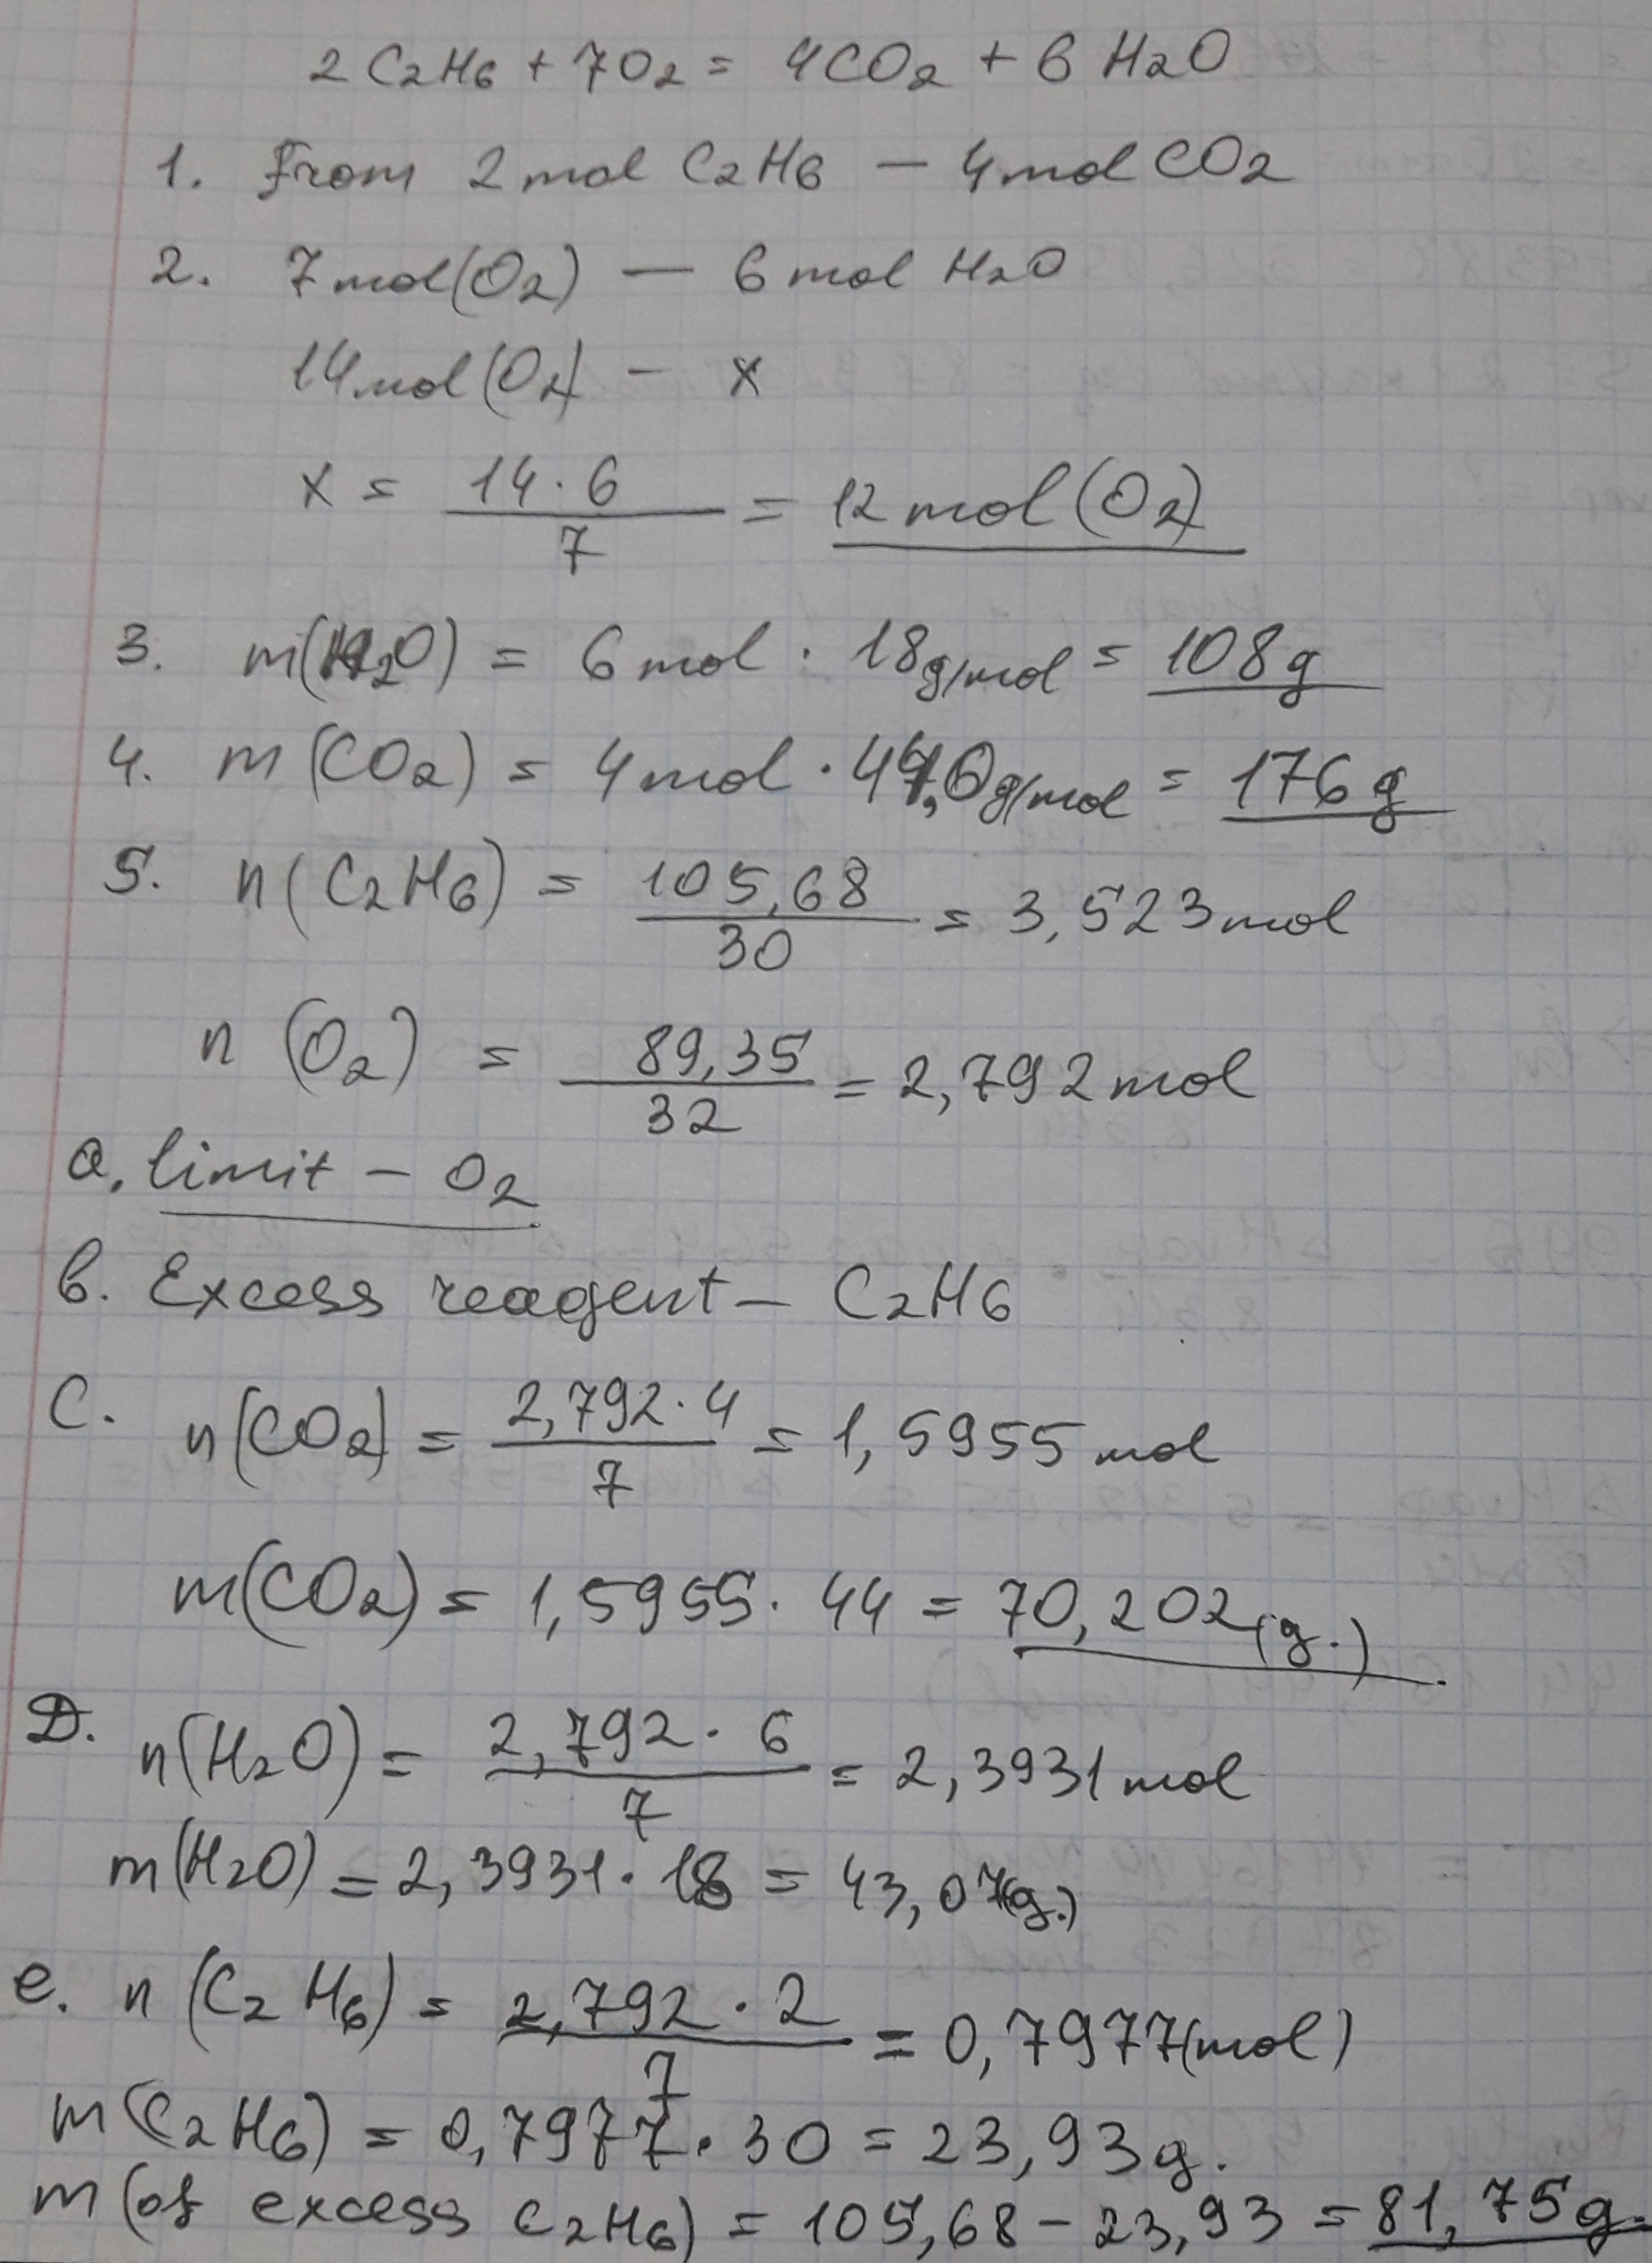 2C₂H₆ + 7O₂ = 4CO₂ + 6H₂O
1. From 2mol C₂H₆ — 4mol CO₂
2. 7mol(O₂) — 6mol H₂O
14mol(O₂) — x
x = 14·6/7 = 12mol(O₂)
3. m(H₂O) = 6mol · 18g/mol = 108g
4. m(CO₂) = 4mol · 44,0g/mol = 176g
5. n(C₂H₆) = 105,68/30 = 3,523mol
n(O₂) = 89,35/32 = 2,792mol
a. limit — O₂
b. Excess reagent — C₂H₆
C. n(CO₂) = 2,792·4/7 = 1,5955mol
m(CO₂) = 1,5955 · 44 = 70,202(g.)
D. n(H₂O) = 2,792·6/7 = 2,3931mol
m(H₂O) = 2,3931 · 18 = 43,07(g.)
e. n(C₂H₆) = 2,792·2/7 = 0,7977(mol)
m(C₂H₆) = 0,7977 · 30 = 23,93g.
m(of excess C₂H₆) = 105,68 – 23,93 = 81,75g.